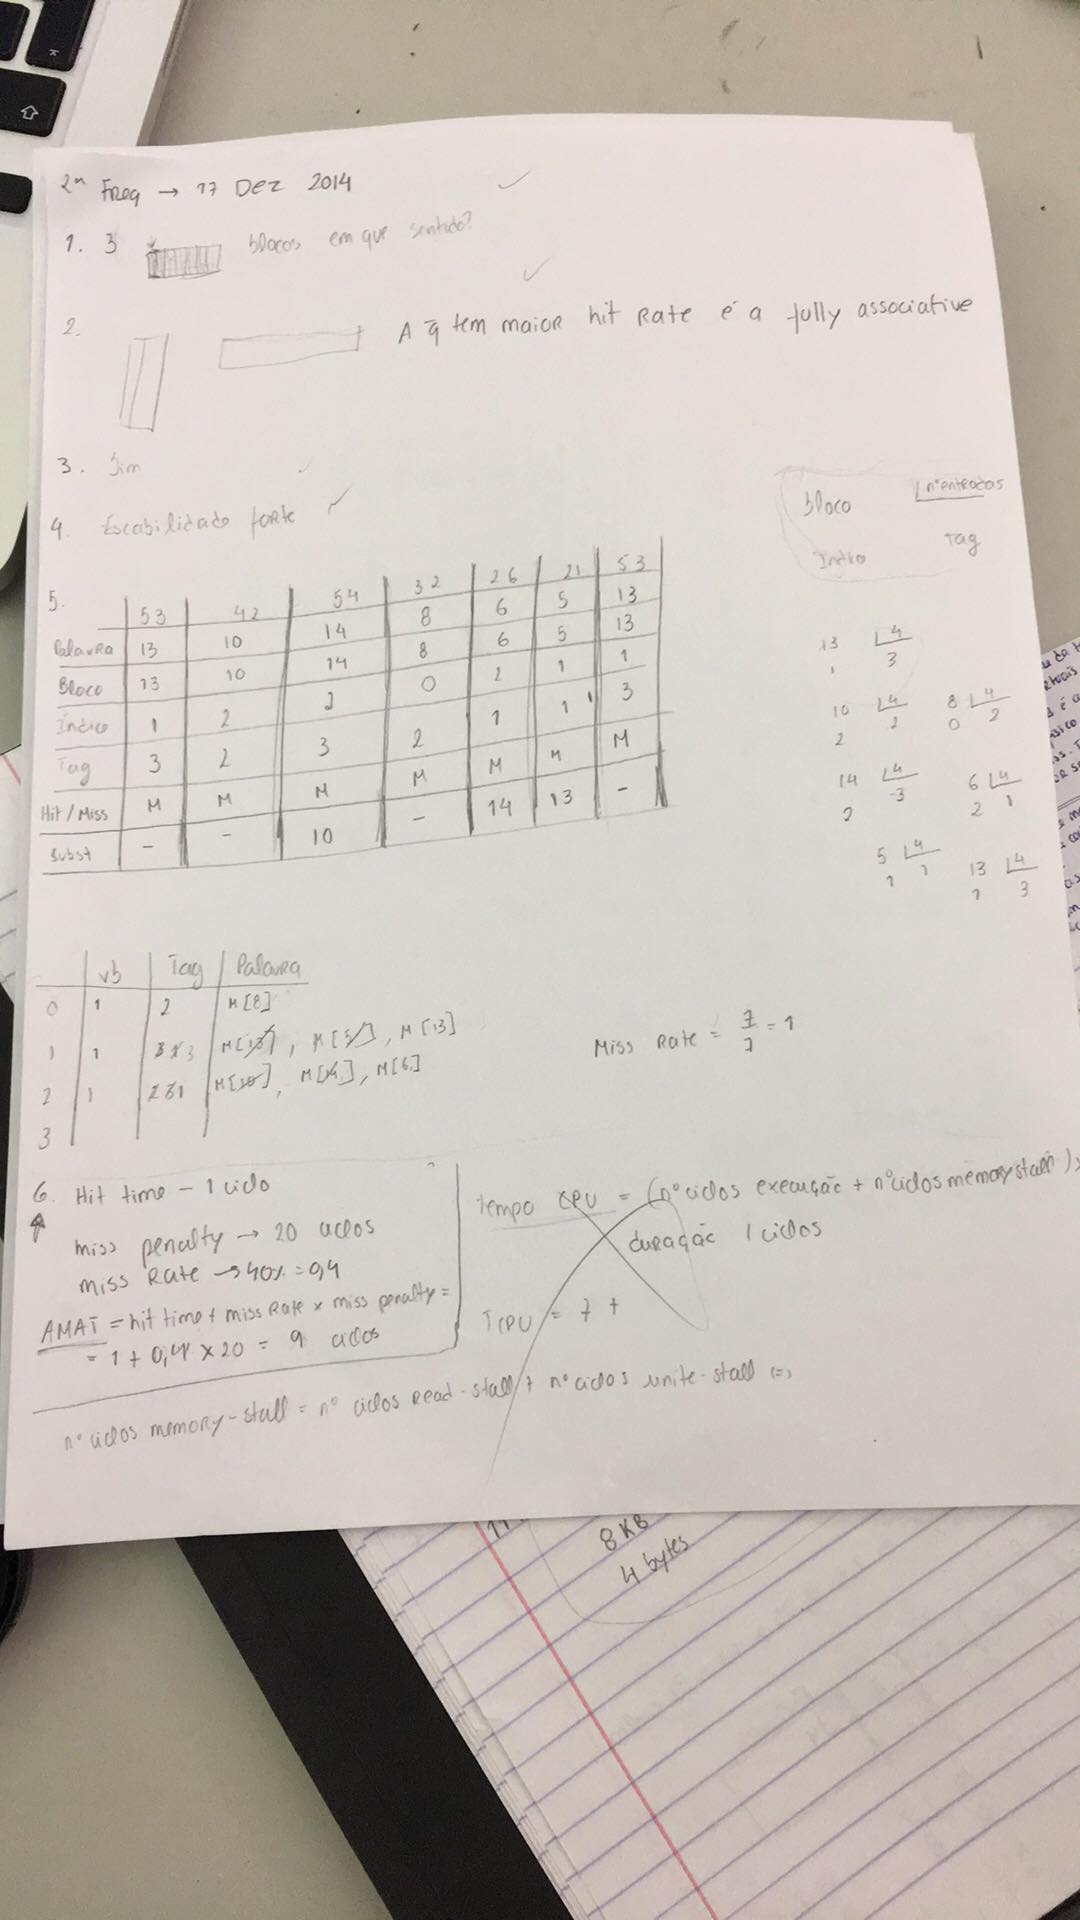 2ª Freq → 17 Dez 2014
1. 3 blocos em que sentido?
2. A q̄ tem maior hit Rate é a fully associative
3. Sim
4. Escabilidade forte
bloco nº entradas
Índice Tag
5. 53 42 54 32 26 21 53
Palavra 13 10 14 8 6 5 13
Bloco 13 10 14 8 6 5 13
Índice 1 2 2 0 2 1 1
Tag 3 2 3 2 1 1 3
Hit/Miss M M M M M M M
Subst - - 10 - 14 13 -
13 4
1 3
10 4 8 4
2 2 0 2
14 4 6 4
2 3 2 1
5 4 13 4
1 1 1 3
vb Tag Palavra
0 1 2 M[8]
1 1 3 1 3 M[13], M[5], M[13]
2 1 2 3 1 M[10], M[14], M[6]
3
Miss Rate = 7/7 = 1
6. Hit time - 1 ciclo
miss penalty → 20 ciclos
miss Rate → 40% = 0,4
AMAT = hit time + miss Rate x miss penalty =
= 1 + 0,4 x 20 = 9 ciclos
tempo CPU = (nº ciclos execução + nº ciclos memory stall) x
duração 1 ciclos
TCPU = 7 +
nº ciclos memory-stall = nº ciclos Read-stall + nº ciclos write-stall (=)
8 KB
4 bytes